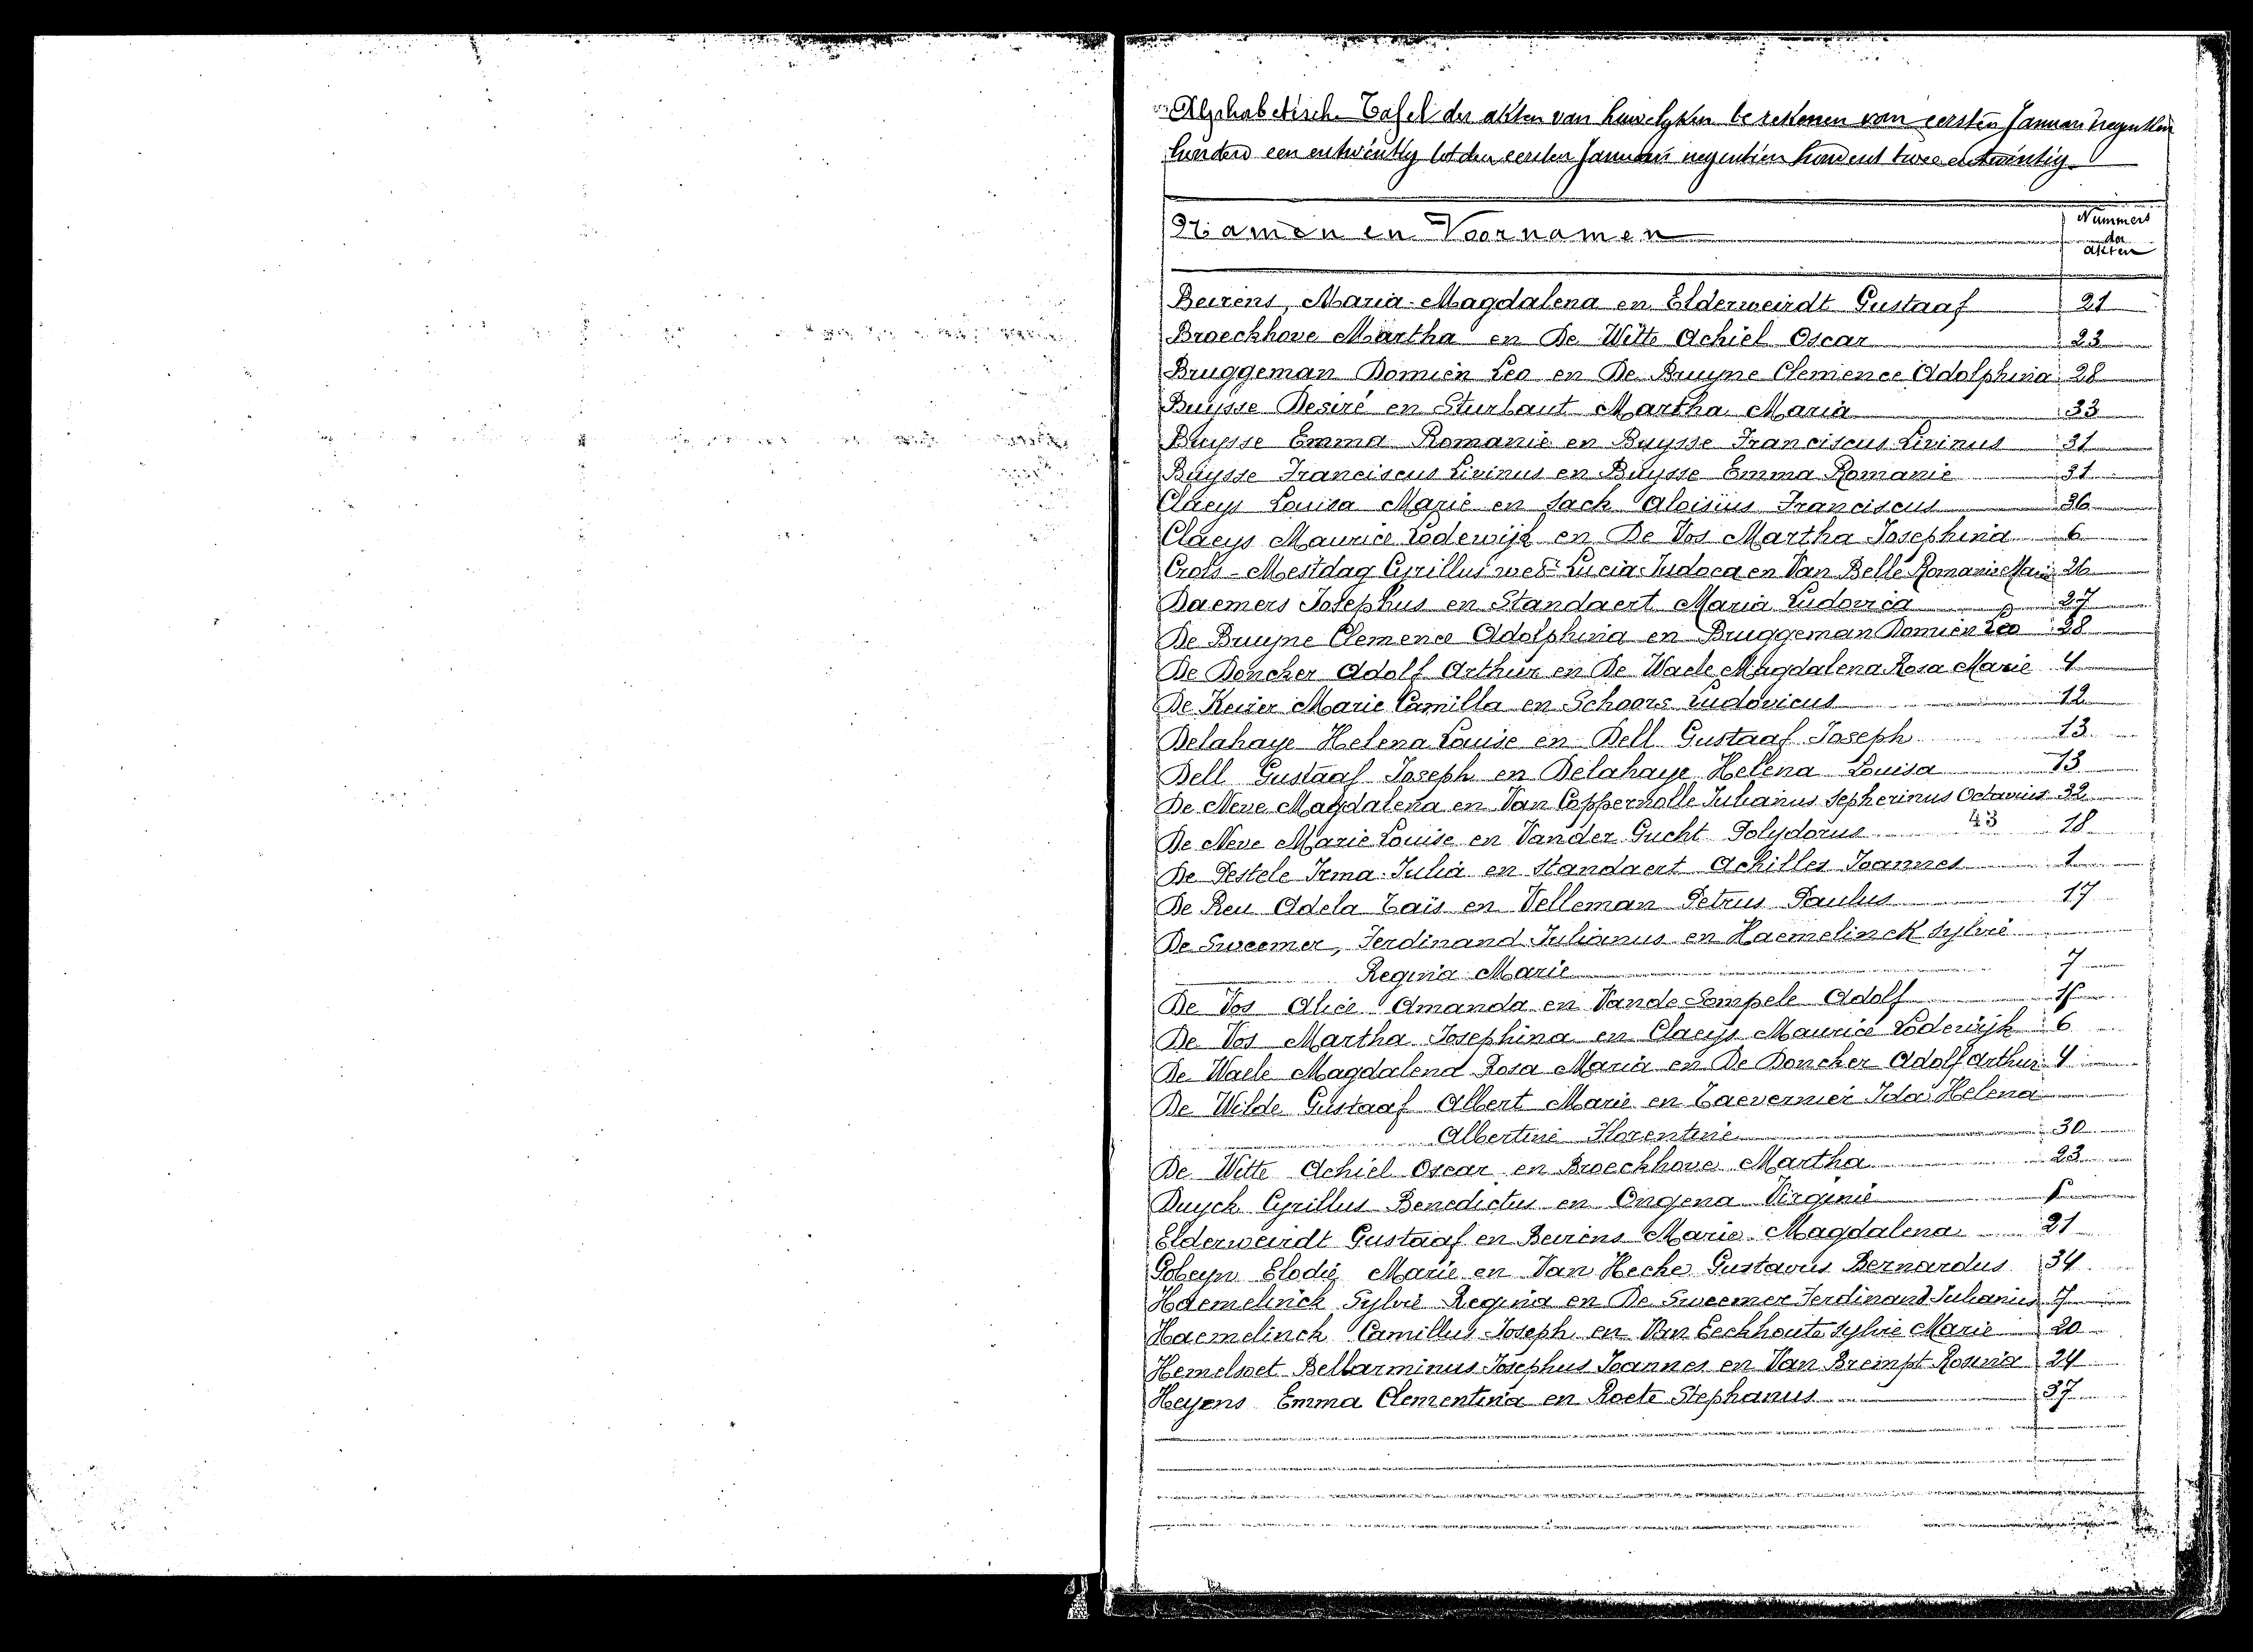 Alphabetische Tafel der akten van huwelyken te rekenen van eersten Januari negentien
hunderd een entwintig tot den eersten Januari negentien hundert twee entwintig
Namen en Voornamen
Nummers
der
akten
Beirens, Maria-Magdalena en Elderweirdt Gustaaf 21
Broeckhove Martha en De Witte Achiel Oscar 23
Bruggeman Domien Leo en De Bruyne Clemence Adolphina 28
Buysse Desiré en Sturbaut Martha Maria 33
Buysse Emma Romanie en Buysse Franciscus Livinus 31
Buysse Franciscus Livinus en Buysse Emma Romanie 31
Claeys Louisa Marie en Sack Aloisius Franciscus 36
Claeys Maurice Lodewijk en De Vos Martha Josephina 6
Crols-Mestdag Cyrillus Lucia Judoca en Van Belle Romanie Marie 26
Daemers Josephus en Standaert Maria Ludovica 27
De Bruyne Clemence Adolphina en Bruggeman Domien Leo 28
De Doncker Adolf Arthur en De Waele Magdalena Rosa Marie 4
De Keizer Marie Camilla en Schoors Ludovicus 12
Delahaye Helena Louise en Dell Gustaaf Joseph 13
Dell Gustaaf Joseph en Delahaye Helena Louisa 13
De Neve Magdalena en Van Coppernolle Julianus Sepherinus Octavius 32
De Neve Marie Louise en Vander Gucht Polydorus 43 18
De Pestele Irma Julia en Standaert Achilles Joannes 1
De Reu Adela Taïs en Velleman Petrus Paulus 17
De Sweemer, Ferdinand Julianus en Haemelinck Sylvie
Regina Marie 7
De Vos Alice Amanda en Vande Sompele Adolf
De Vos Martha Josephina en Claeys Maurice Lodewijk 6
De Waele Magdalena Rosa Maria en De Doncker Adolf Arthur 4
De Wilde Gustaaf Albert Marie en Taevernier Ida Helena
Albertine Florentine 30
De Witte Achiel Oscar en Broeckhove Martha 23
Duyck Cyrillus Benedictus en Ongena Virginie
Elderweirdt Gustaaf en Beirens Marie Magdalena 21
Gobeyn Elodie Marie en Van Hecke Gustavus Bernardus 34
Haemelinck Sylvie Regina en De Sweemer Ferdinand Julianus 7
Haemelinck Camillus Joseph en Van Eeckhoute Sylvie Marie 20
Hemelsoet Bellarminus Josephus Joannes en Van Brempt Rosina 24
Heyens Emma Clementina en Roete Stephanus 37